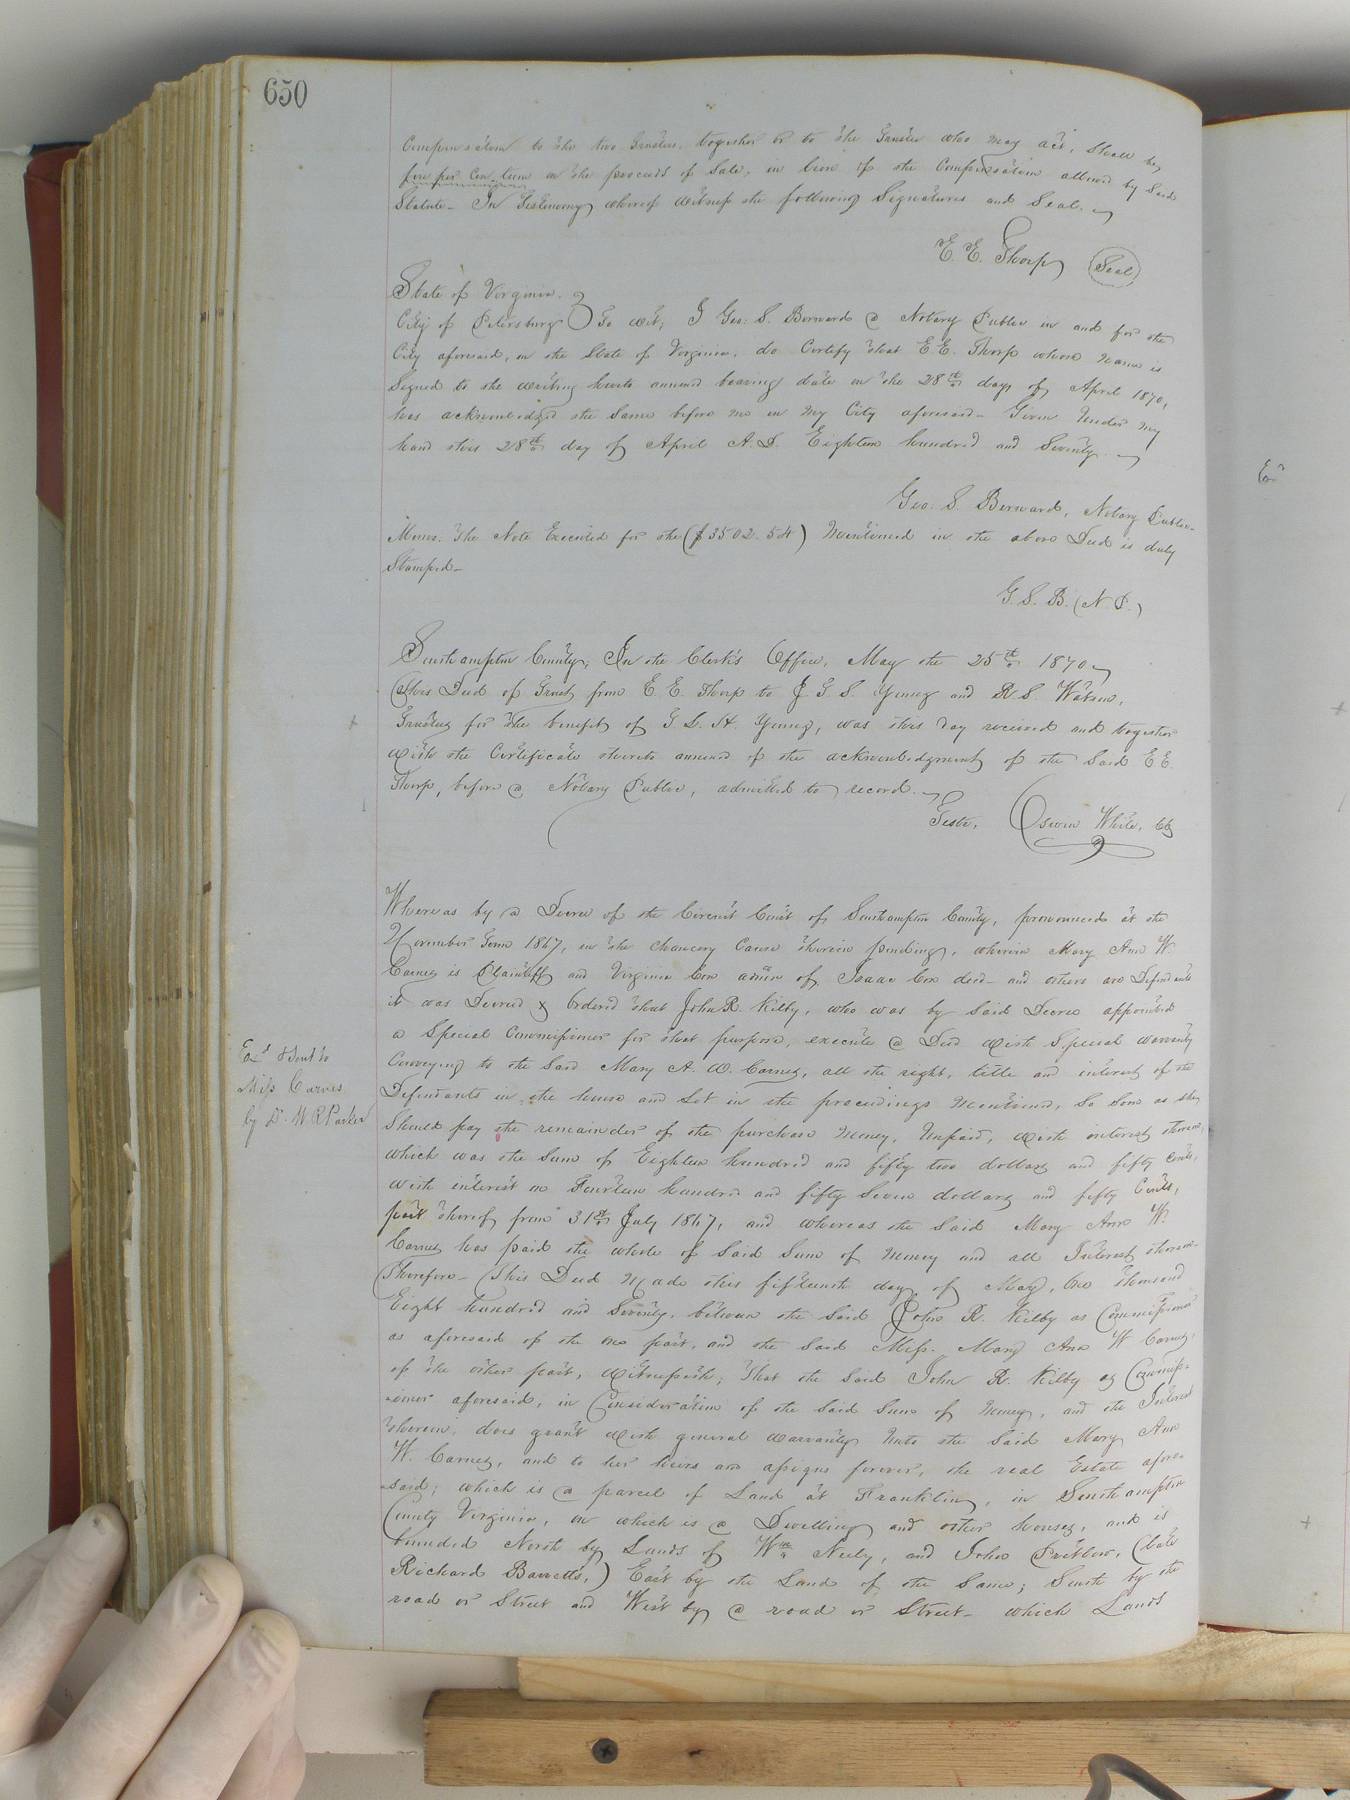 650
Compensation to the two Trustees, together or to the Trustee who may act, shall be
five per Centum on the proceeds of Sale, in lieu of the Compensation allowed by Said
Statute - In Testimony whereof witness the following Signatures and Seal.
E. E. Thorp (Seal)
State of Virginia.
City of Petersburg To wit; I Geo: S. Bernard a Notary Public in and for the
City aforesaid, in the State of Virginia, do Certify that E E. Thorp whose name is
Signed to the writing hereto annexed bearing date on the 28th day of April 1870,
has acknowledged the Same before me in my City aforesaid - Given Under my
hand this 28th day of April A.D. Eighteen hundred and Seventy.
Geo. S. Bernard, Notary Public -
Memo. The Note Executed for the ($3502.54) Mentioned in the above Deed is duly
Stamped -
G. S. B. (N. P.)
Southampton County, In the Clerk's Office, May the 25th 1870.
This Deed of Trust from E. E. Thorp to J G. S. Young and R. S. Watson,
Trustees for the benefit of G L. H. Young, was this day received and together
with the Certificate thereto annexed of the acknowledgment of the Said E E.
Thorp, before a Notary Public, admitted to record.
Teste, Oswin White, Clk
Whereas by a Decree of the Circuit Court of Southampton County, pronounced at the
November Term 1867, in the Chancery Cause therein pending, wherein Mary Ann W.
Carney is Plaintiff and Virginia Cox admx of Isaac Cox decd - and others are Defendants
it was Decreed & Ordered that John R. Kilby, who was by Said Decree appointed
a Special Commissioner for that purpose, execute a Deed with Special warranty
Conveying to the Said Mary A. W. Carney, all the right, title and interest of the
Defendants in the house and Lot in the proceedings Mentioned, So Soon as they
Should pay the remainder of the purchase Money, Unpaid, with interest thereon,
which was the Sum of Eighteen hundred and fifty two dollars and fifty Cents,
with interest on Fourteen hundred and fifty Seven dollars and fifty Cents,
part thereof from 31st July 1867, and whereas the Said Mary Ann W.
Carney has paid the whole of Said Sum of Money and all Interest thereon -
Therefore - This Deed Made this fifteenth day of May, One thousand
Eight hundred and Seventy, between the Said John R. Kilby as Commissioner
as aforesaid of the one part, and the Said Miss. Mary Ann W Carney,
of the other part, Witnesseth; That the Said John R. Kilby as Commiss-
-ioner aforesaid, in Consideration of the Said Sum of Money, and the Interest
thereon, does grant with general warranty Unto the Said Mary Ann
W. Carney, and to her heirs and assigns forever, the real Estate afore-
-said; which is a parcel of Land at Franklin, in Southampton
County Virginia, on which is a Dwelling and other houses, and is
bounded North by Lands of Wm Neely, and John Pretlow, (late
Richard Barretts,) East by the Land of the Same; South by the
road or Street and West by a road or Street - which Lands
Exd & Sent to
Miss Carnes
by Dr. W R Parker
Exd